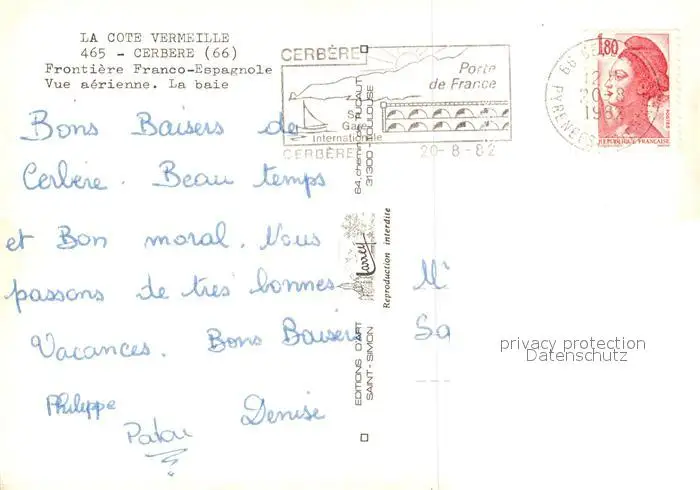 LA COTE VERMEILLE
465 - CERBERE (66)
Frontière Franco-Espagnole
Vue aérienne. La baie
CERBÈRE
Porte
de France
Sa
Gare
Internationale
CERBÈRE 20-8-82
1,80
REPUBLIQUE FRANÇAISE
66
12
20-8
PYRENEES
Bons Baisers de
Cerbère. Beau temps
et Bon moral. Nous
passons de très bonnes
Vacances. Bons Baisers
Philippe
Denise
Patou
EDITIONS D'ART
SAINT-SIMON
31300 - TOULOUSE
Larrey
Reproduction interdite
M
Sa
privacy protection
Datenschutz